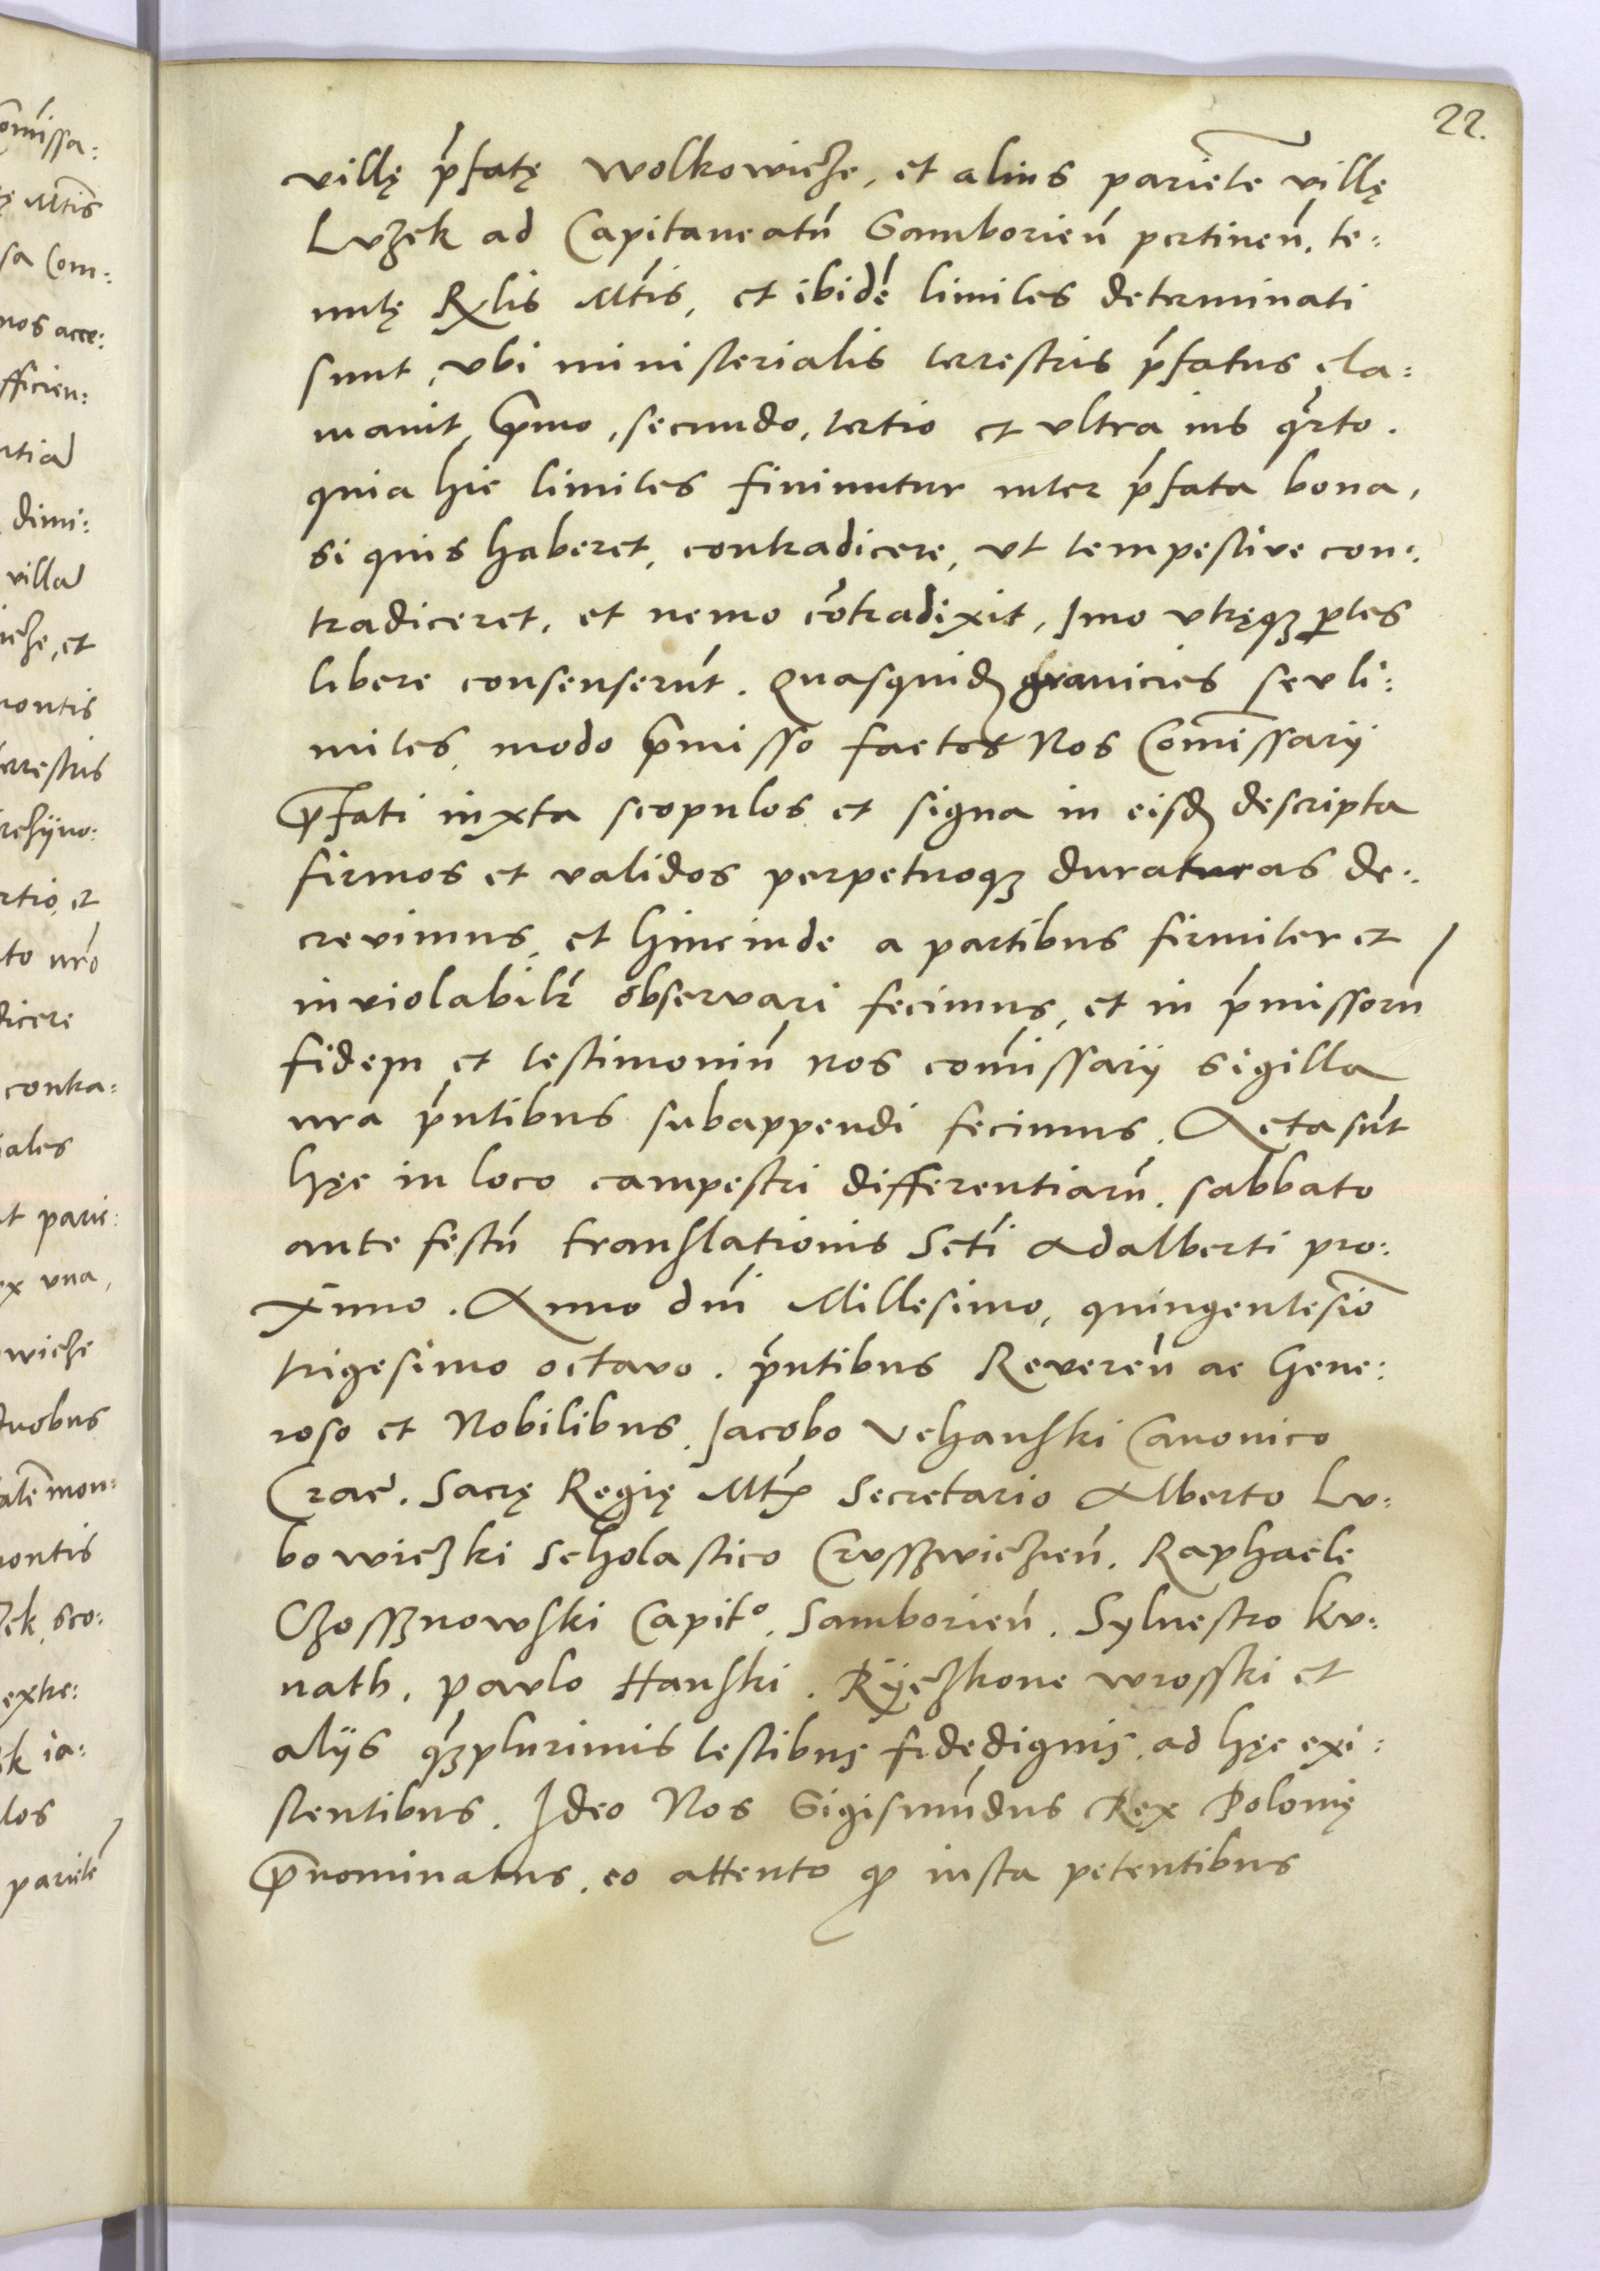 22.
villę p̄fatę Wolkowicze, et alius parietē villę
Luzek ad Capitaneatū Samborien̄ pertinen̄. te:
nutę R̄lis Mt̄is, et ibidē limites determinati
sunt, vbi ministerialis terrestris p̄fatus cla:
mavit, p̄mo, secundo, tertio et vltra ius q̄rto.
quia hic limites finiuntur inter p̄fata bona,
si quis haberet, contradicere, vt tempestive con:
tradiceret, et nemo cōtradixit, Imo vtręqꝫ ꝑtes
libere consenserūt. Quasquidꝫ granicies seu li:
mites, modo p̄misso factos Nos Com̄issarij
p̄fati iuxta scopulos et signa in eisdꝫ descripta
firmos et validos perpetuoqꝫ duraturas de:
crevimus, et hincinde a partibus firmiter et
inviolabilr̄ observari fecimus, et in p̄missorū
fidem et testimoniū nos com̄issarij sigilla
nr̄a p̄ntibus subappendi fecimus. Acta sūt
hęc in loco campestri differentiarū. sabbato
ante festū translationis Sct̄i Adalberti pro:
ximo. Anno dn̄i Millesimo, quingentesīo
trigesimo octavo. p̄ntibus Reveren̄ ac Gene:
roso et Nobilibus. Jacobo Vchanski Canonico
Crac̄. Sacrę Regię Mt̄ꝭ Secretario Alberto Lu:
bowieʒki Scholastico Crussʒwicʒien̄. Raphaele
Cʒossʒnowski Capitº. Samborien̄. Sylvestro Ku:
nath. pavlo Hanski. Rÿcʒkone Wrosski et
alijs qꝫplurimis testibus fidedignis, ad hęc exi:
stentibus. Ideo Nos Sigismūdus Rex Polonię
p̄nominatus. eo attento ꝙ iusta petentibus